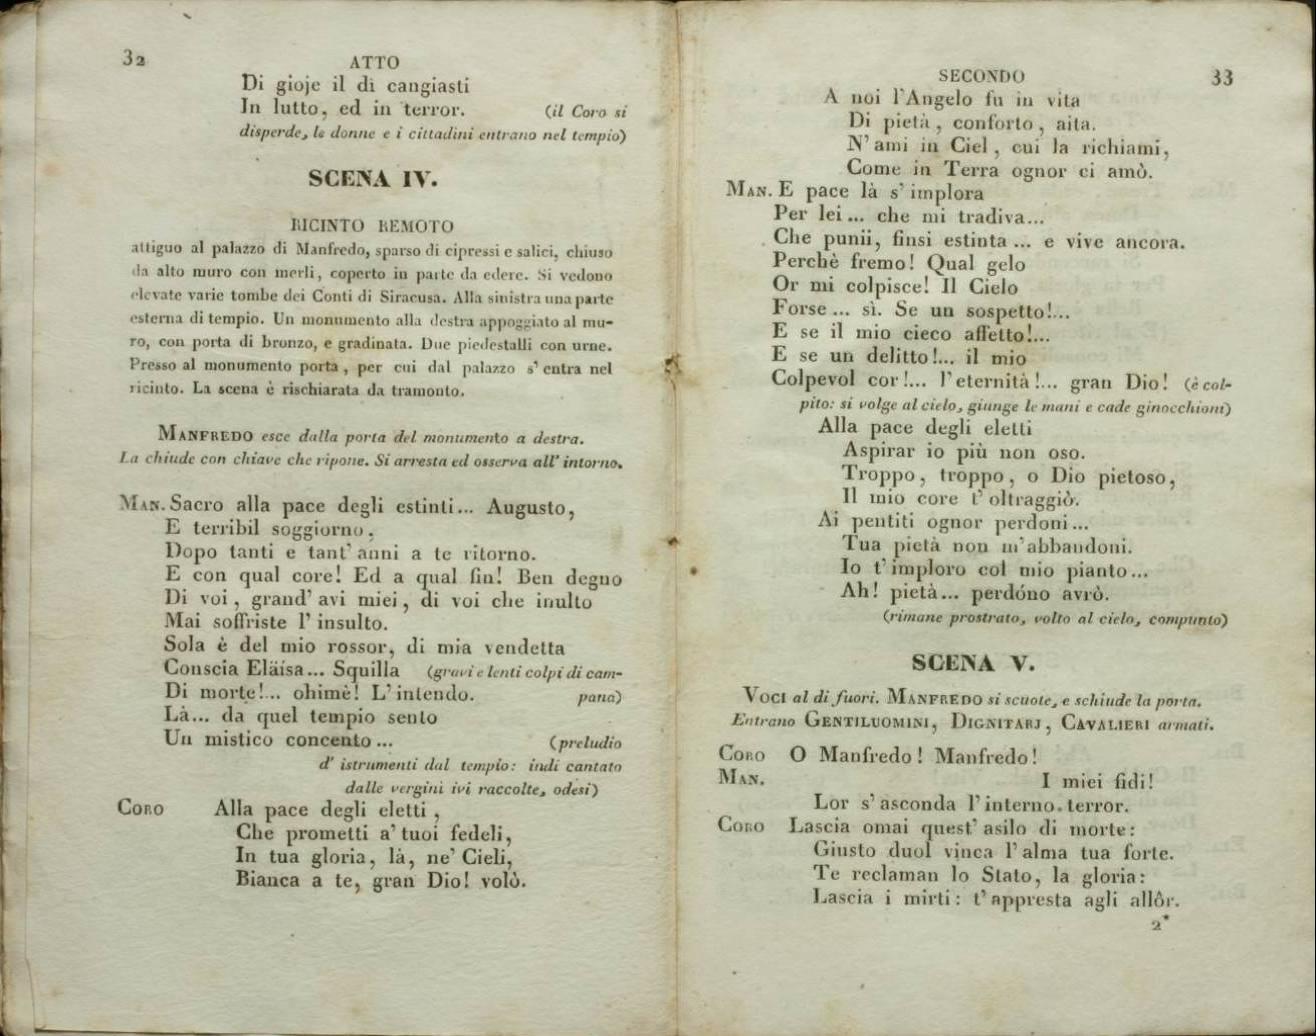 32
ATTO
Di gioje il dì cangiasti
In lutto, ed in terror. (il Coro si
disperde, le donne e i cittadini entrano nel tempio)
SCENA IV.
RICINTO REMOTO
attiguo al palazzo di Manfredo, sparso di cipressi e salici, chiuso
da alto muro con merli, coperto in parte da edere. Si vedono
elevate varie tombe dei Conti di Siracusa. Alla sinistra una parte
esterna di tempio. Un monumento alla destra appoggiato al mu-
ro, con porta di bronzo, e gradinata. Due piedestalli con urne.
Presso al monumento porta, per cui dal palazzo s' entra nel
ricinto. La scena è rischiarata da tramonto.
MANFREDO esce dalla porta del monumento a destra.
La chiude con chiave che ripone. Si arresta ed osserva all' intorno.
MAN. Sacro alla pace degli estinti... Augusto,
E terribil soggiorno,
Dopo tanti e tant' anni a te ritorno.
E con qual core! Ed a qual fin! Ben degno
Di voi, grand' avi miei, di voi che inulto
Mai soffriste l' insulto.
Sola è del mio rossor, di mia vendetta
Conscia Eläisa... Squilla (gravi e lenti colpi di cam-
Di morte!... ohimè! L' intendo. pana)
Là... da quel tempio sento
Un mistico concento... (preludio
d' istrumenti dal tempio: indi cantato
dalle vergini ivi raccolte, odesi)
CORO Alla pace degli eletti,
Che prometti a' tuoi fedeli,
In tua gloria, là, ne' Cieli,
Bianca a te, gran Dio! volò.
SECONDO
33
A noi l'Angelo fu in vita
Di pietà, conforto, aita.
N' ami in Ciel, cui la richiami,
Come in Terra ognor ci amò.
MAN. E pace là s' implora
Per lei... che mi tradiva...
Che punii, finsi estinta... e vive ancora.
Perchè fremo! Qual gelo
Or mi colpisce! Il Cielo
Forse... sì. Se un sospetto!...
E se il mio cieco affetto!...
E se un delitto!... il mio
Colpevol cor!... l' eternità!... gran Dio! (è col-
pito: si volge al cielo, giunge le mani e cade ginocchioni)
Alla pace degli eletti
Aspirar io più non oso.
Troppo, troppo, o Dio pietoso,
Il mio core t' oltraggiò.
Ai pentiti ognor perdoni...
Tua pietà non m'abbandoni.
Io t' imploro col mio pianto...
Ah! pietà... perdóno avrò.
(rimane prostrato, volto al cielo, compunto)
SCENA V.
VOCI al di fuori. MANFREDO si scuote, e schiude la porta.
Entrano GENTILUOMINI, DIGNITARJ, CAVALIERI armati.
CORO O Manfredo! Manfredo!
MAN. I miei fidi!
Lor s' asconda l' interno terror.
CORO Lascia omai quest' asilo di morte:
Giusto duol vinca l' alma tua forte.
Te reclaman lo Stato, la gloria:
Lascia i mirti: t' appresta agli allôr.
2*